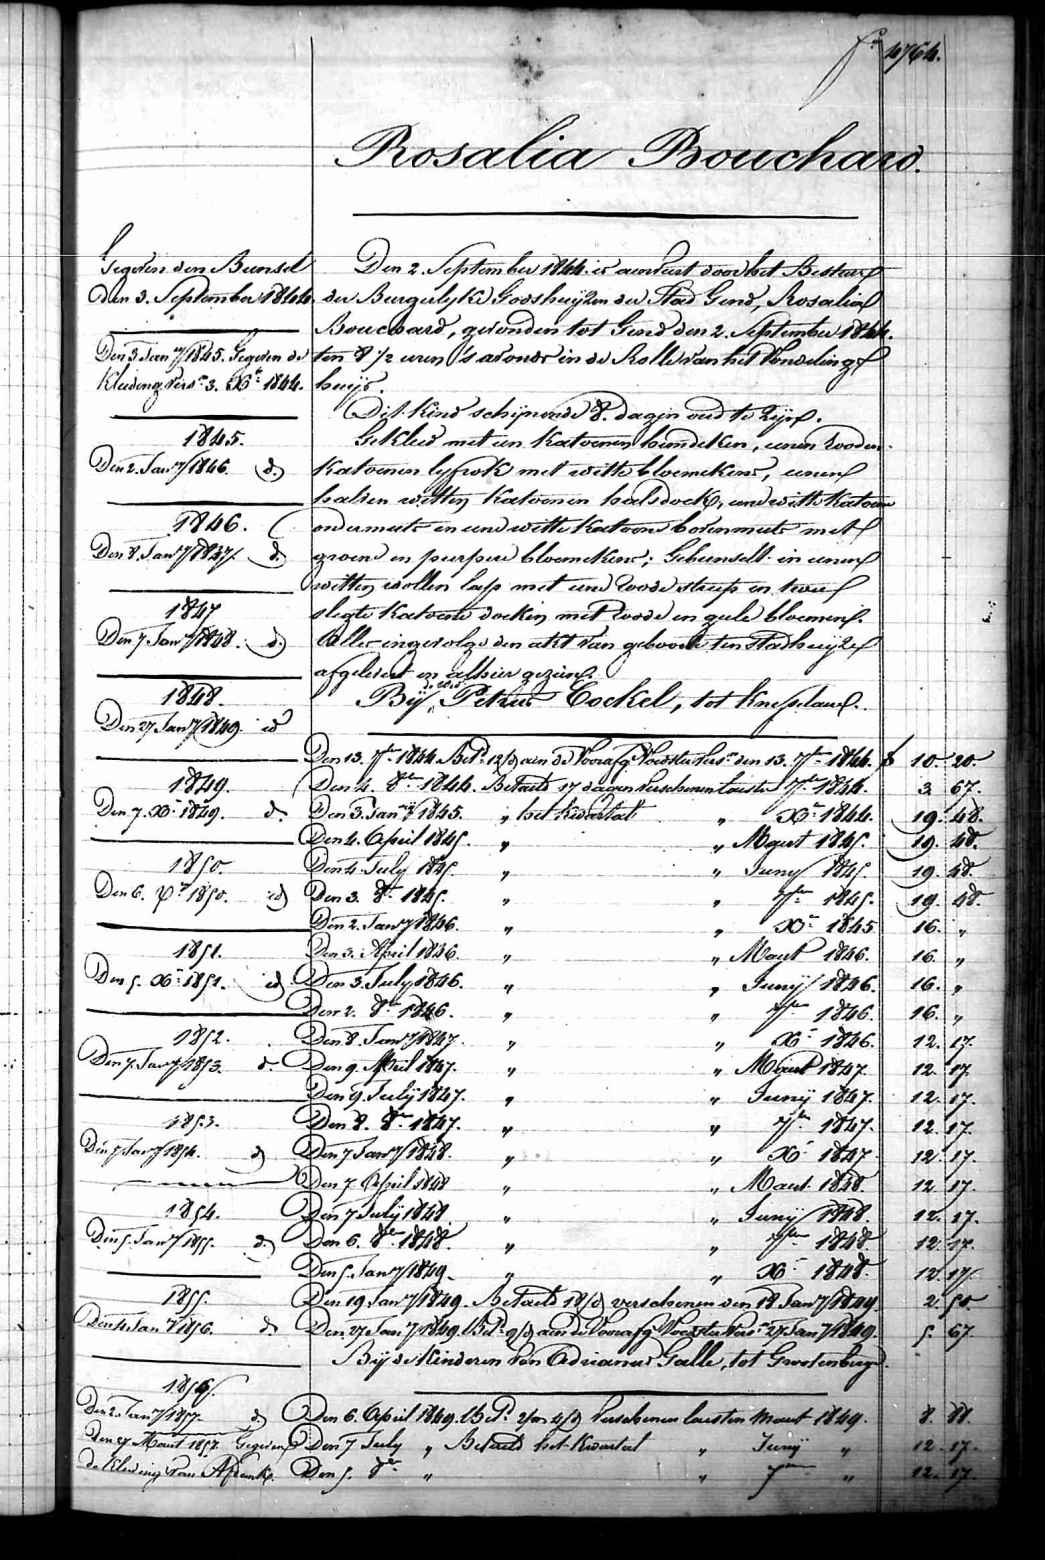 fo 4764.
Rosalia Bouchard.
Gegeven den Bunsel
den 3. September 1844.
Den 3 Janry 1845. Gegeven de
Kleeding vers. 3. Xr 1844.
1845.
Den 2. Janry 1846. id.
1846.
Den 8. Janry 1847. id.
1847
Den 7. Janry 1848. id.
1848.
Den 27 Janry 1849. id
1849.
Den 7. Xr 1849. id.
1850.
Den 6. Xr 1850. id
1851.
Den 5. Xr 1851. id
1852.
Den 7. Janry 1853. id.
1853.
Den 7 Janry 1854. id
1854.
Den 5. Janry 1855. id.
1855.
Den 4 Janry 1856. id
1856.
Den 2. Janry 1857. id
Den 9 Maart 1857. Gegeven
de Kleeding van
Den 2. September 1844. is aenveirt door het Bestuer
der Burgerlyke Godshuyzen der Stad Gend, Rosalia
Bouchard, gevonden tot Gend den 2. September 1844.
ten 8 1/2 uren 's avonds in de Rolle van het Vondelinge
huys.
Dit kind schynende 8. dagen oud te zyn.
Gekleed met een katoenen hemdeken, eenen rooden
katoenen lyfrok met witte bloemekens, eenen
halven witten katoenen halsdoek, eene witte katoene
ondermuts en eene witte katoene bovenmuts met
groene en purpere bloemekens; Gebunselt in eenen
witten wollen lap met eene roode streep en twee
slegte katoene doeken met roode en geele bloemen.
Alles ingevolge den akt van geboorte ten stadhuyze
afgelevert en alhier gezien.
By de wed. Petrus Cockel, tot Knesselaere.
Den 13. 7ber 1844. Bet. 12/9 aen de Voorafg. Voedster vers. den 13. 7ber 1844. f 10. 20.
Den 4. 8ber 1844. Betaelt 17 dagen verschenen laesten 7ber 1844. 3. 67.
Den 3. Janry 1845. " het kwartael " Xr 1844. 19. 48.
Den 4. April 1845. " " Maert 1845. 19. 48.
Den 4. July 1845. " " Juny 1845. 19. 48.
Den 3. 8ber 1845. " " 7ber 1845. 19. 48.
Den 2. Janry 1846. " " Xr 1845 16. "
Den 3. April 1846. " " Maert 1846. 16. "
Den 3. July 1846. " " Juny 1846. 16. "
Den 2. 8ber 1846. " " 7ber 1846. 16. "
Den 8. Janry 1847. " " Xr 1846. 12. 17.
Den 9. April 1847. " " Maert 1847. 12. 17.
Den 9. July 1847. " " Juny 1847. 12. 17.
Den 8. 8ber 1847. " " 7ber 1847. 12. 17.
Den 7 Janry 1848. " " Xr 1847 12. 17.
Den 7 April 1848 " " Maert 1848. 12 17.
Den 7 July 1848. " " Juny 1848. 12. 17.
Den 6. 8ber 1848. " " 7ber 1848 12. 17.
Den 5. Janry 1849. " " Xr 1848. 12. 17.
Den 19 Janry 1849. Betaelt 18/d verschenen den 18 Janry 1849 2. 50
Den 27 Janry 1849. Bet. 9/d aen de Voorafg. Voedster vers. 27 Janry 1849. 5. 67.
By de kinderen van Adrianus Galle, tot Grootenberge.
Den 6. April 1849. Bet. 2/m 4/d verschenen laesten Maert 1849. 8. 88.
Den 7 July " Betaelt het kwartael " Juny " 12. 17.
Den 5. 8ber " " 7ber " 12. 17.